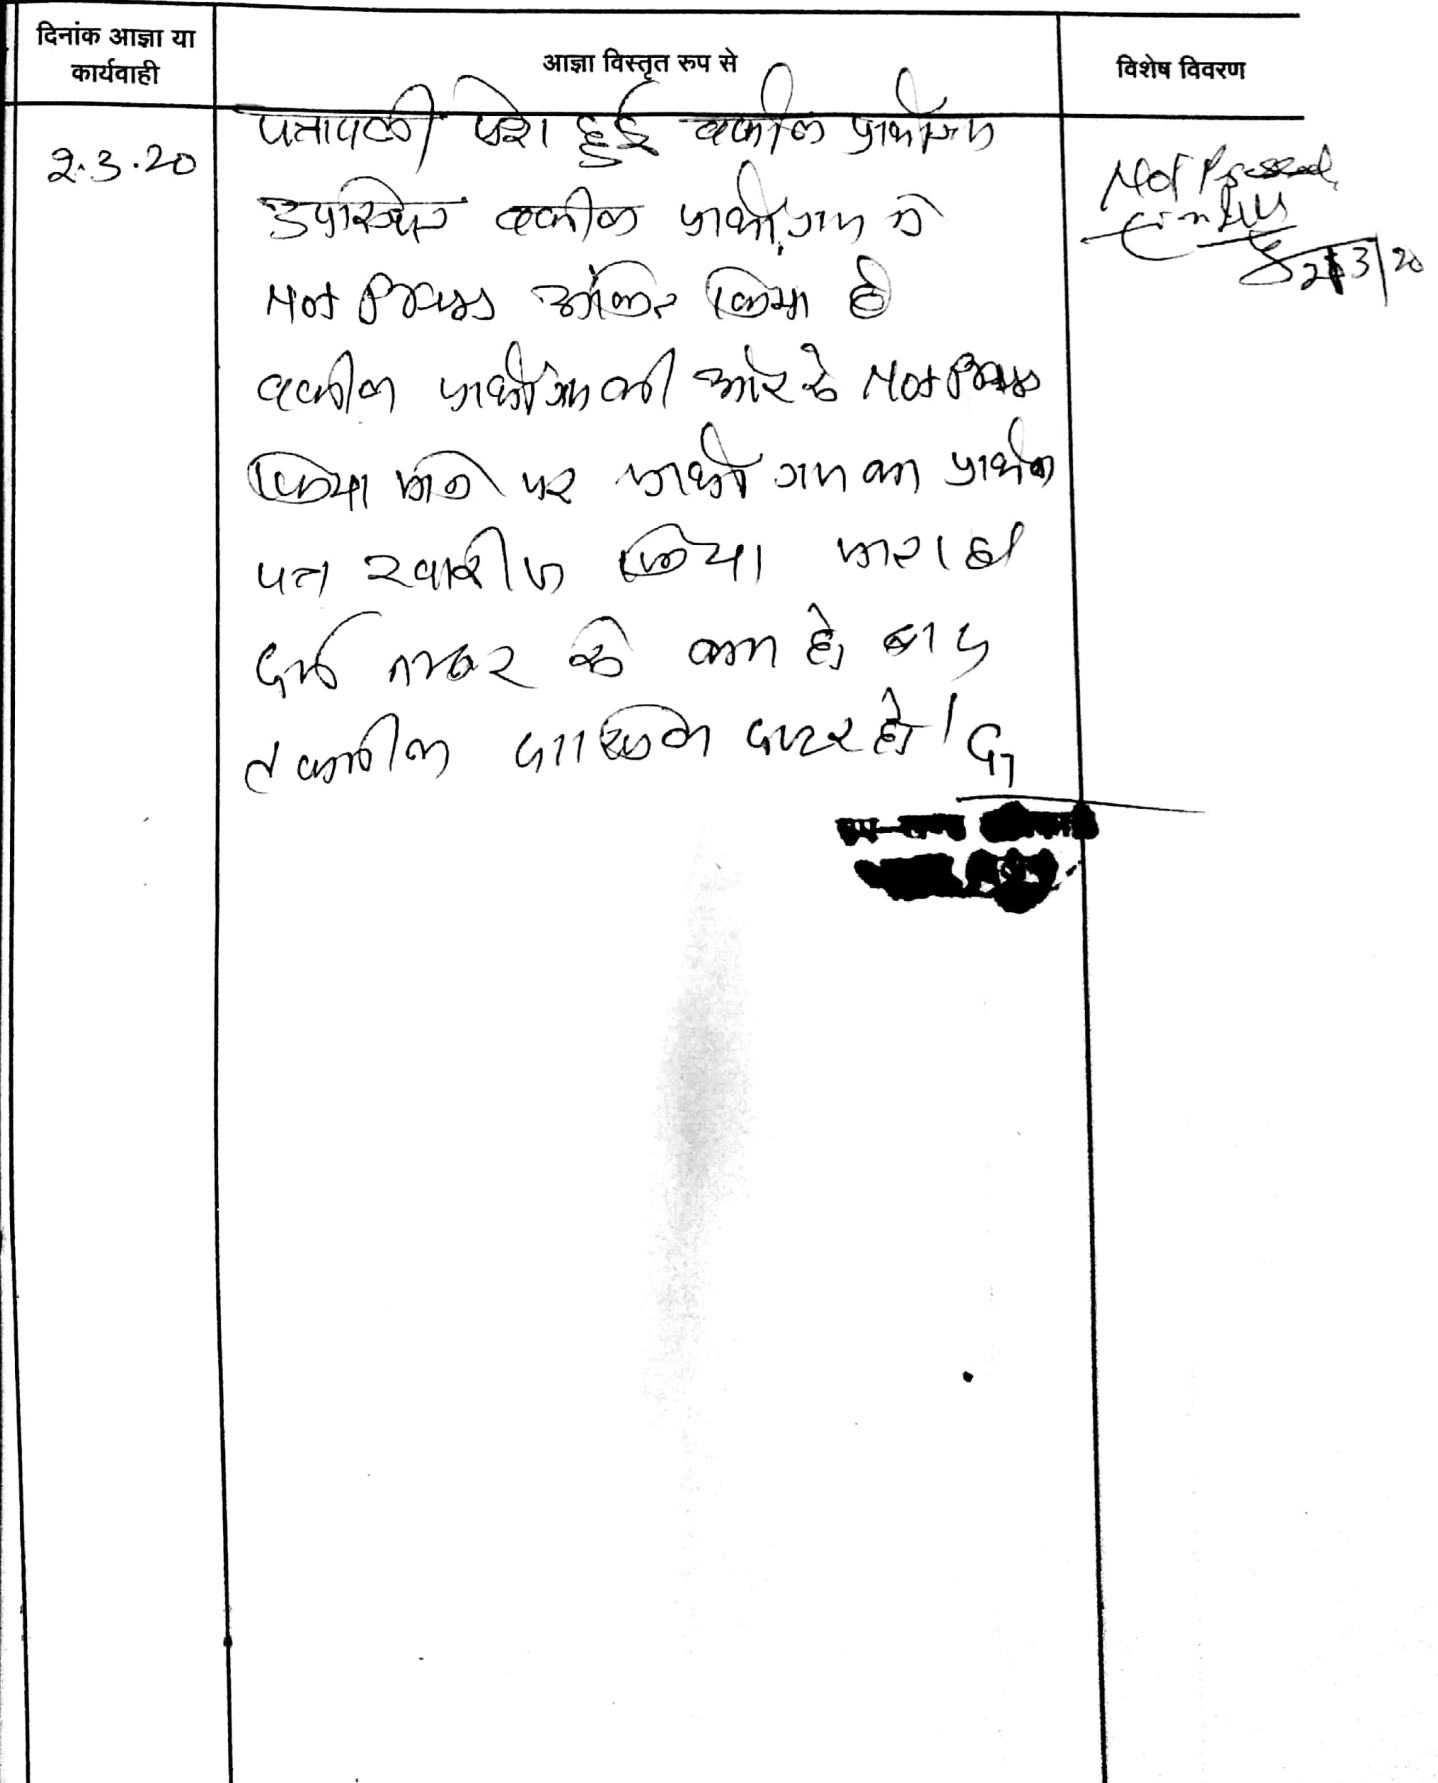 दिनांक आज्ञा या
कार्यवाही
आज्ञा विस्तृत रूप से
विशेष विवरण
2.3.20
पत्रावली पेश हुई वकील प्रार्थीगण
उपस्थित वकील प्रार्थीगण ने
Not Press अंकित किया है
वकील प्रार्थीगण की ओर से Not Press
किया जाने पर प्रार्थीगण का प्रार्थना
पत्र खारीज किया जाता है
दर्ज नम्बर से कम हो, बाद
तकमील दाखिल दफ्तर हो।
Not Pressed
2/3/20